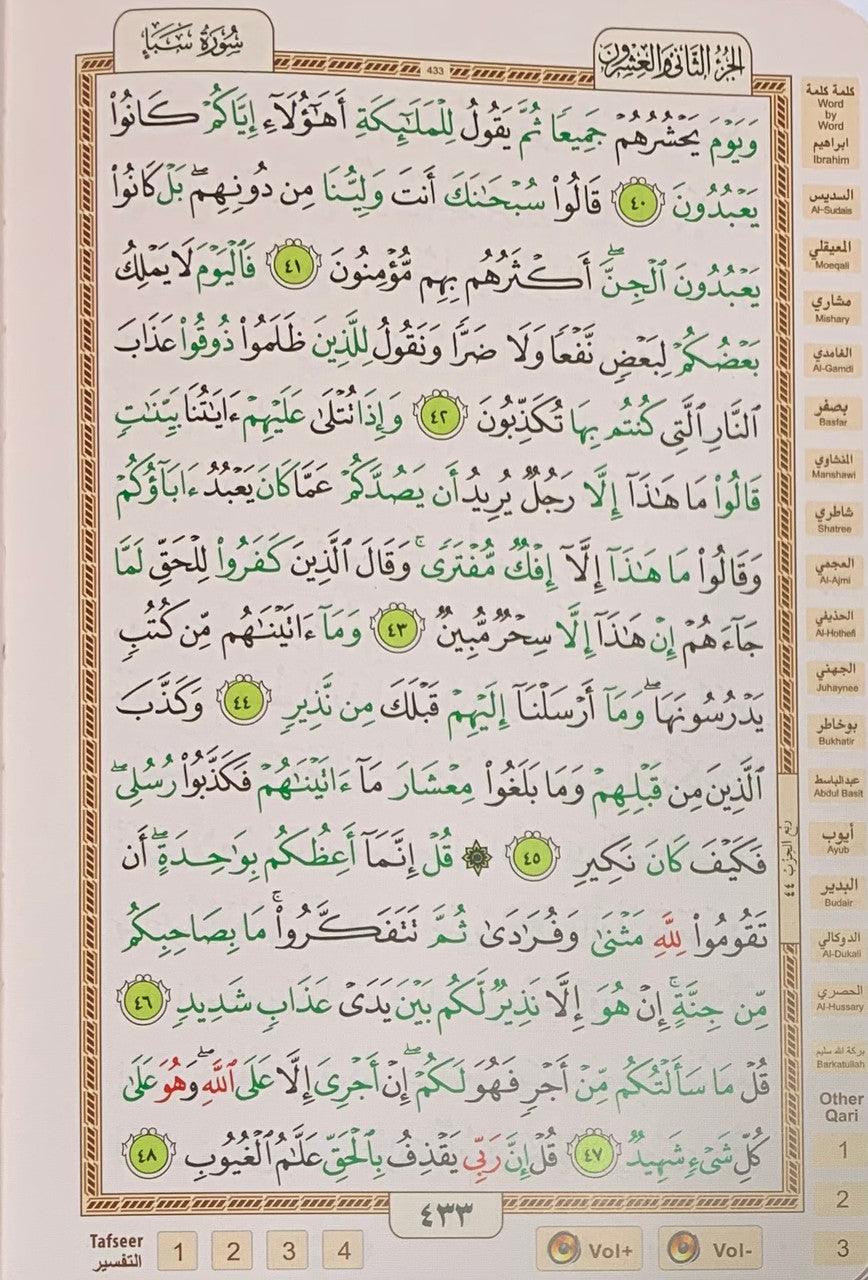 سُورَةُ سَبَإٍ
الجُزْءُ الثَّانِي وَالعِشْرُونَ
433
وَيَوْمَ يَحْشُرُهُمْ جَمِيعًا ثُمَّ يَقُولُ لِلْمَلَٰٓئِكَةِ أَهَٰٓؤُلَآءِ إِيَّاكُمْ كَانُوا۟
يَعْبُدُونَ ٤٠ قَالُوا۟ سُبْحَٰنَكَ أَنتَ وَلِيُّنَا مِن دُونِهِم ۖ بَلْ كَانُوا۟
يَعْبُدُونَ ٱلْجِنَّ ۖ أَكْثَرُهُم بِهِم مُّؤْمِنُونَ ٤١ فَٱلْيَوْمَ لَا يَمْلِكُ
بَعْضُكُمْ لِبَعْضٍ نَّفْعًا وَلَا ضَرًّا وَنَقُولُ لِلَّذِينَ ظَلَمُوا۟ ذُوقُوا۟ عَذَابَ
ٱلنَّارِ ٱلَّتِى كُنتُم بِهَا تُكَذِّبُونَ ٤٢ وَإِذَا تُتْلَىٰ عَلَيْهِمْ ءَايَٰتُنَا بَيِّنَٰتٍ
قَالُوا۟ مَا هَٰذَآ إِلَّا رَجُلٌ يُرِيدُ أَن يَصُدَّكُمْ عَمَّا كَانَ يَعْبُدُ ءَابَآؤُكُمْ
وَقَالُوا۟ مَا هَٰذَآ إِلَّآ إِفْكٌ مُّفْتَرًى ۚ وَقَالَ ٱلَّذِينَ كَفَرُوا۟ لِلْحَقِّ لَمَّا
جَآءَهُمْ إِنْ هَٰذَآ إِلَّا سِحْرٌ مُّبِينٌ ٤٣ وَمَآ ءَاتَيْنَٰهُم مِّن كُتُبٍ
يَدْرُسُونَهَا ۖ وَمَآ أَرْسَلْنَآ إِلَيْهِمْ قَبْلَكَ مِن نَّذِيرٍ ٤٤ وَكَذَّبَ
ٱلَّذِينَ مِن قَبْلِهِمْ وَمَا بَلَغُوا۟ مِعْشَارَ مَآ ءَاتَيْنَٰهُمْ فَكَذَّبُوا۟ رُسُلِى ۖ
فَكَيْفَ كَانَ نَكِيرِ ٤٥ ۞ قُلْ إِنَّمَآ أَعِظُكُم بِوَٰحِدَةٍ ۖ أَن
تَقُومُوا۟ لِلَّهِ مَثْنَىٰ وَفُرَٰدَىٰ ثُمَّ تَتَفَكَّرُوا۟ ۚ مَا بِصَاحِبِكُم
مِّن جِنَّةٍ ۚ إِنْ هُوَ إِلَّا نَذِيرٌ لَّكُم بَيْنَ يَدَىْ عَذَابٍ شَدِيدٍ ٤٦
قُلْ مَا سَأَلْتُكُم مِّنْ أَجْرٍ فَهُوَ لَكُمْ ۖ إِنْ أَجْرِىَ إِلَّا عَلَى ٱللَّهِ ۖ وَهُوَ عَلَىٰ
كُلِّ شَىْءٍ شَهِيدٌ ٤٧ قُلْ إِنَّ رَبِّى يَقْذِفُ بِٱلْحَقِّ عَلَّٰمُ ٱلْغُيُوبِ ٤٨
ربع الحزب ٤٤
٤٣٣
كلمة كلمة
Word
by
Word
ابراهيم
Ibrahim
السديس
Al-Sudais
المعيقلي
Moeqali
مشاري
Mishary
الغامدي
Al-Gamdi
بصفر
Basfar
المنشاوي
Manshawi
شاطري
Shatree
العجمي
Al-Ajmi
الحذيفي
Al-Hothefi
الجهني
Juhaynee
بوخاطر
Bukhatir
عبدالباسط
Abdul Basit
أيوب
Ayub
البدير
Budair
الدوكالي
Al-Dukali
الحصري
Al-Hussary
بركة الله سليم
Barkatullah
Other
Qari
1
2
3
Tafseer
التفسير
1 2 3 4
Vol+
Vol-